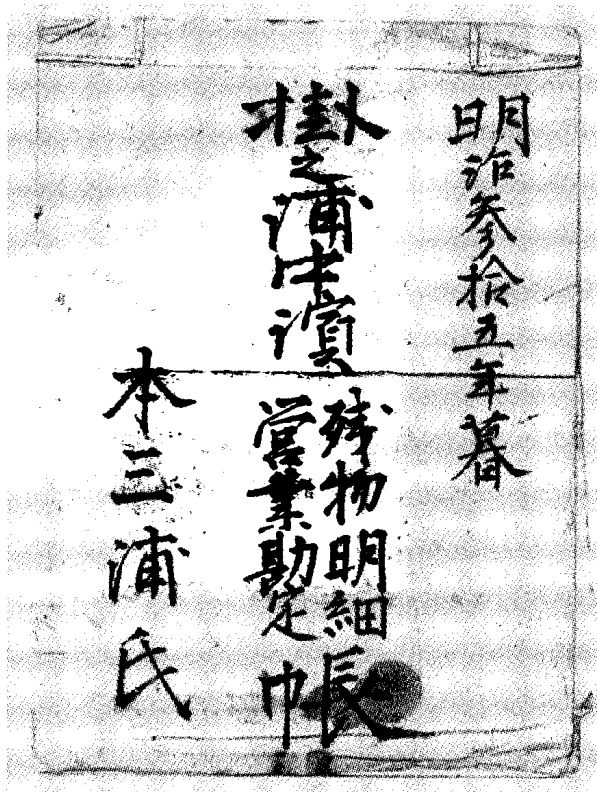 明治参拾五年暮
掛之浦沖濱
残物明細
営業勘定
帳
本三浦氏